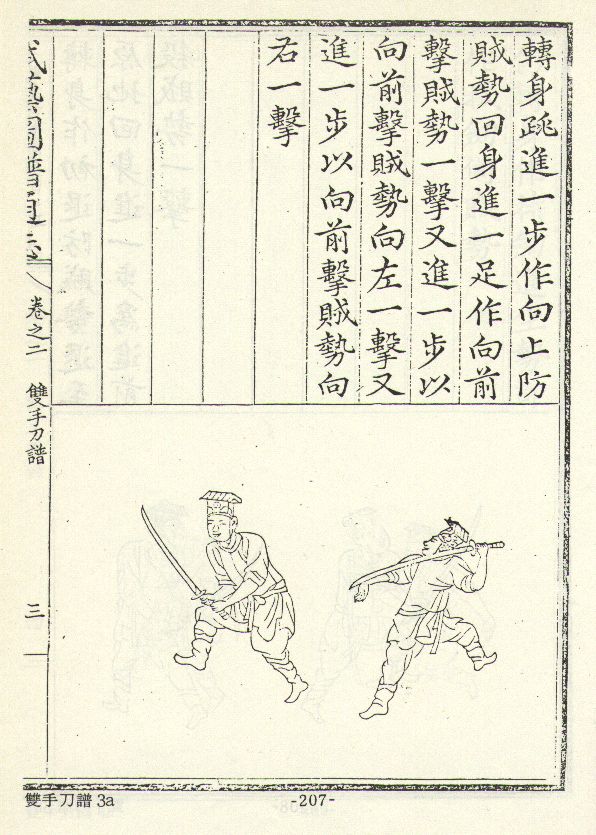 轉身跳進一步作向上防
賊勢回身進一足作向前
擊賊勢一擊又進一步以
向前擊賊勢向左一擊又
進一步以向前擊賊勢向
右一擊
武藝圖譜通志
卷之二
雙手刀譜
三
雙手刀譜 3a
-207-